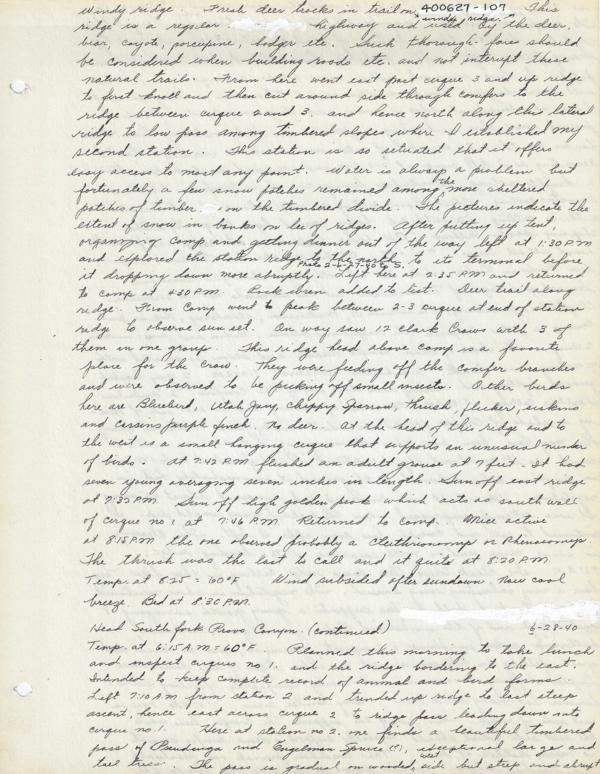 windy ridge. Fresh deer tracks in trail on 400627-107 This
"windy ridge."
ridge is a regular highway and used by the deer,
bear, coyote, porcupine, badger etc. Such thorough-fares should
be considered when building roads etc. and not interrupt these
natural trails. From here went east past cirque 3 and up ridge
to first knoll and then cut around side through conifers to the
ridge between cirque 2 and 3. and hence north along this lateral
ridge to low pass among timbered slopes where I established my
second station. This station is so situated that it offers
easy access to most any point. Water is always a problem but
fortunately a few snow patches remained among the more sheltered
patches of timber on the timbered divide. The pictures indicate the
extent of snow in banks on lee of ridges. After putting up tent,
organizing camp and getting dinner out of the way left at 1:30 P.M
and explored the station ridge to the north to its terminal before
Photo 2-6-27-40 to S.
it dropping down more abruptly. Left here at 2:35 P.M and returned
to camp at 4:30 P.M. Rock wren added to list. Deer trail along
ridge. From Camp went to peak between 2-3 cirque at end of station
ridge to observe sun set. On way saw 12 Clark Crows with 3 of
them in one group. This ridge head above camp is a favorite
place for the crow. They were feeding off the conifer branches
and were observed to be picking off small insects. Other birds
here are Bluebird, Utah Jay, Chippy Sparrow, Thrush, flicker, siskins
and cassins purple finch. No deer. At the head of this ridge and to
the west is a small hanging cirque that supports an unusual number
of birds. At 7:42 P.M flushed an adult grouse at 7 feet. It had
seven young averaging seven inches in length. Sun off east ridge
at 7:32 P.M Sun off high golden peak which acts as south wall
of cirque no 1 at 7:46 P.M. Returned to camp. Mice active
at 8:15 P.M. the one observed probably a Clethrionomys or Phenacomys.
The thrush was the last to call and it quits at 8:20 P.M.
Temp. at 8:25 = 60°F Wind subsided after sundown. Now cool
breeze. Bed at 8:30 P.M.
Head South fork Provo Canyon. (continued) 6-28-40
Temp. at 6:15 A.M = 60°F Planned this morning to take lunch
and inspect cirques no 1. and the ridge bordering to the east.
Intended to keep complete record of animal and bird forms.
Left 7:10 A.M from station 2 and trended up ridge to last steep
ascent, hence east across cirque 2 to ridge pass leading down into
cirque no. 1. Here at station no 2. one finds a beautiful timbered
pass of and Engelman Spruce (?), exceptional large and
tall trees. The pass is gradual on wooded, west side but steep and abrupt